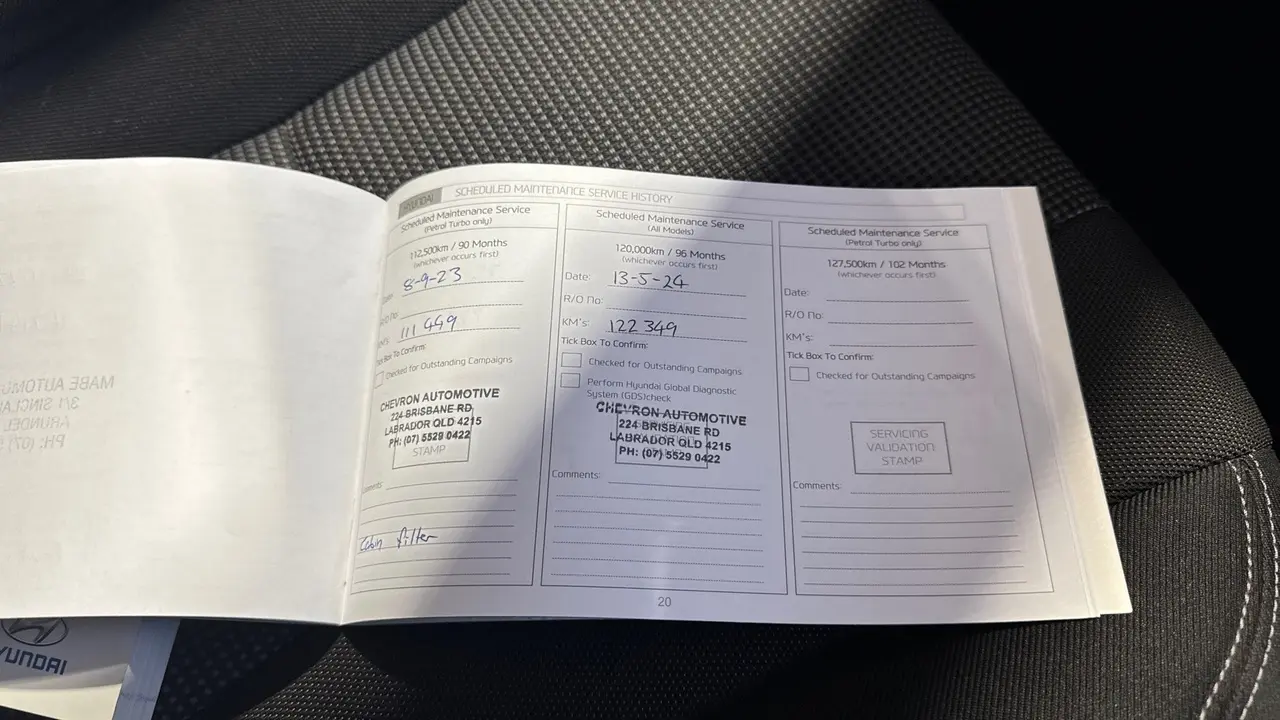 HYUNDAI
SCHEDULED MAINTENANCE SERVICE HISTORY
Scheduled Maintenance Service
(Petrol Turbo only)
112,500km / 90 Months
(whichever occurs first)
8-9-23
R/O No:
KM's: 111 499
Tick Box To Confirm:
Checked for Outstanding Campaigns
CHEVRON AUTOMOTIVE
224 BRISBANE RD
LABRADOR QLD 4215
PH: (07) 5529 0422
STAMP
Comments:
Cabin filter
Scheduled Maintenance Service
(All Models)
120,000km / 96 Months
(whichever occurs first)
Date: 13-5-24
R/O No:
KM's: 122 349
Tick Box To Confirm:
Checked for Outstanding Campaigns
Perform Hyundai Global Diagnostic
System (GDS)check
CHEVRON AUTOMOTIVE
224 BRISBANE RD
LABRADOR QLD 4215
PH: (07) 5529 0422
Comments:
Scheduled Maintenance Service
(Petrol Turbo only)
127,500km / 102 Months
(whichever occurs first)
Date:
R/O No:
KM's:
Tick Box To Confirm:
Checked for Outstanding Campaigns
SERVICING
VALIDATION
STAMP
Comments:
20
MABE
3/1
ARUNDEL
PH: (07)
HYUNDAI